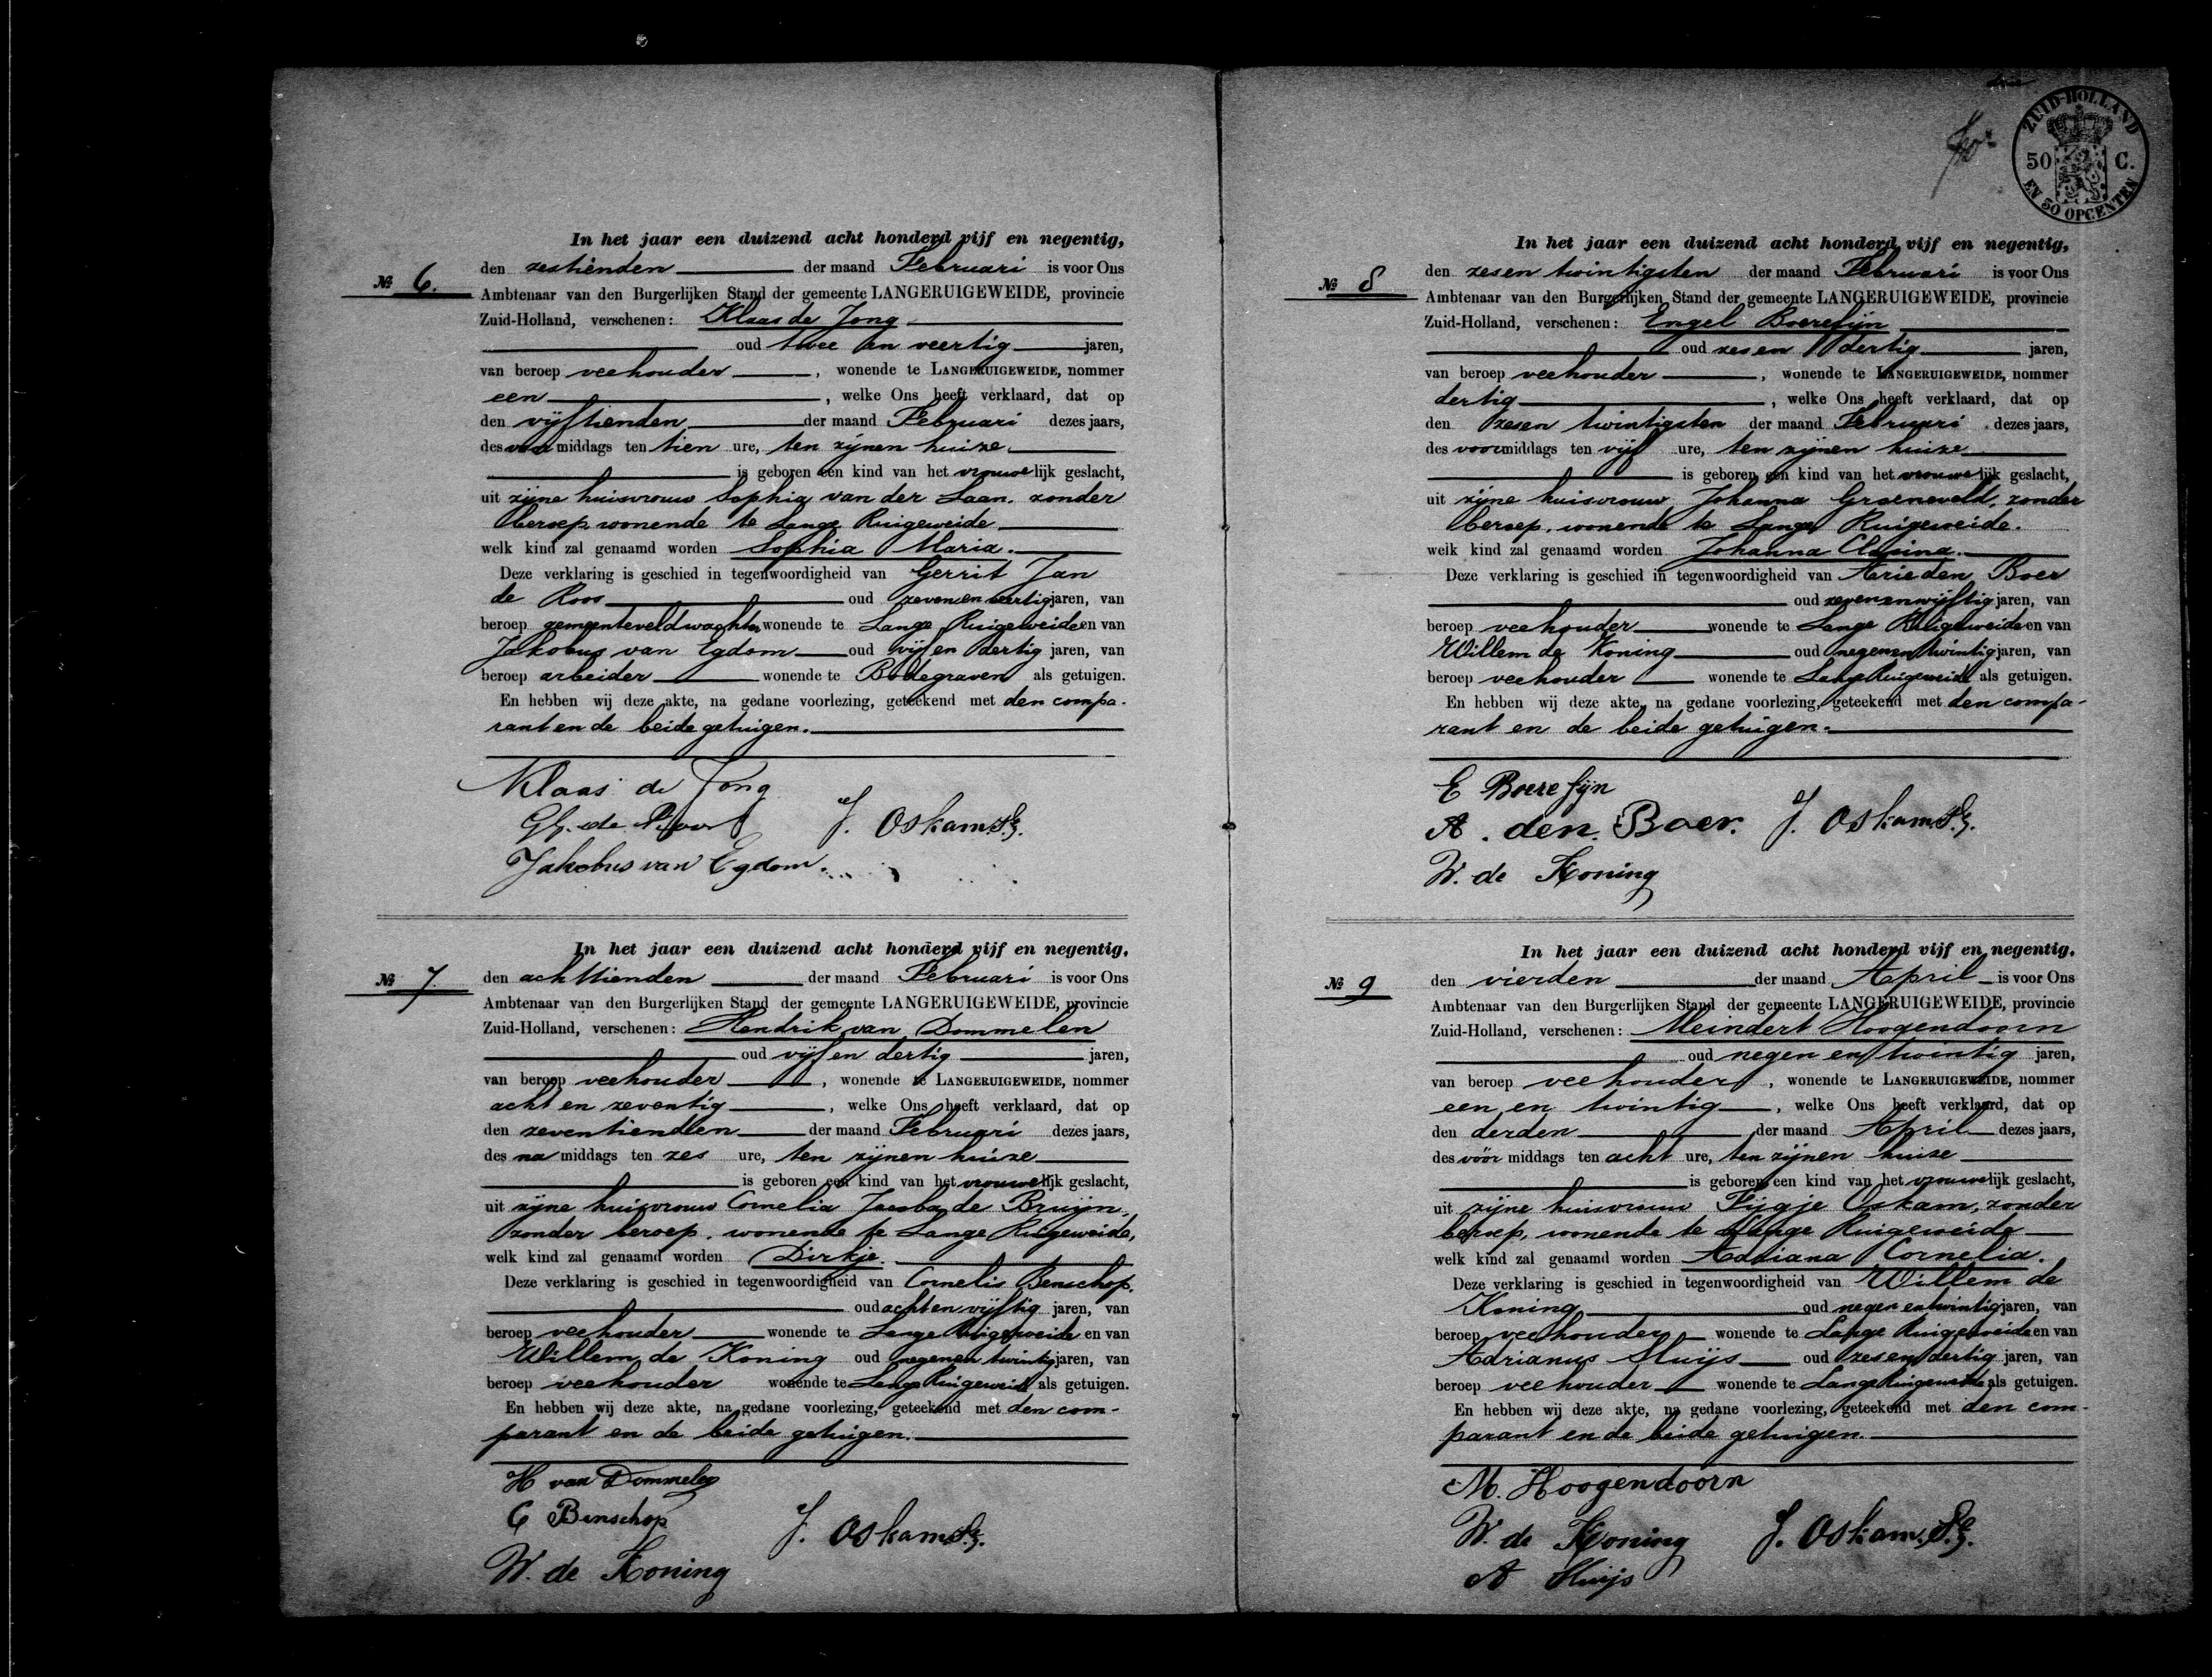 In het jaar een duizend acht honderd vijf en negentig,
№ 6. den zestienden der maand Februari is voor Ons
Ambtenaar van den Burgerlijken Stand der gemeente LANGERUIGEWEIDE, provincie
Zuid-Holland, verschenen: Klaas de Jong
oud twee en veertig jaren,
van beroep veehouder, wonende te LANGERUIGEWEIDE, nommer
een, welke Ons heeft verklaard, dat op
den vijftienden der maand Februari dezes jaars,
des voor middags ten tien ure, ten zijnen huize
is geboren een kind van het vrouwelijk geslacht,
uit zijne huisvrouw Sophia van der Laan, zonder
beroep wonende te Lange Ruigeweide
welk kind zal genaamd worden Sophia Maria.
Deze verklaring is geschied in tegenwoordigheid van Gerrit Jan
de Roos oud zeven en veertig jaren, van
beroep gemeenteveldwachter, wonende te Lange Ruigeweide en van
Jakobus van Egdom oud vijf en dertig jaren, van
beroep arbeider wonende te Bodegraven als getuigen.
En hebben wij deze akte, na gedane voorlezing, geteekend met den compa-
rant en de beide getuigen.
Klaas de Jong
de Roos J. Oskam Sz.
Jakobus van Egdom.
In het jaar een duizend acht honderd vijf en negentig,
№ 7. den achttienden der maand Februari is voor Ons
Ambtenaar van den Burgerlijken Stand der gemeente LANGERUIGEWEIDE, provincie
Zuid-Holland, verschenen: Hendrik van Dommelen
oud vijf en dertig jaren,
van beroep veehouder, wonende te LANGERUIGEWEIDE, nommer
acht en zeventig, welke Ons heeft verklaard, dat op
den zeventienden der maand Februari dezes jaars,
des na middags ten zes ure, ten zijnen huize
is geboren een kind van het vrouwelijk geslacht,
uit zijne huisvrouw Cornelia Jacoba de Bruijn,
zonder beroep, wonende te Lange Ruigeweide,
welk kind zal genaamd worden Dirkje.
Deze verklaring is geschied in tegenwoordigheid van Cornelis Benschop,
oud acht en vijftig jaren, van
beroep veehouder wonende te Lange Ruigeweide en van
Willem de Koning oud negen en twintig jaren, van
beroep veehouder wonende te Lange Ruigeweide als getuigen.
En hebben wij deze akte, na gedane voorlezing, geteekend met den com-
parant en de beide getuigen.
H van Dommelen
C Benschop J. Oskam Sz.
W. de Koning
ZUID-HOLLAND
50 C.
EN 50 OPCENTEN
In het jaar een duizend acht honderd vijf en negentig,
№ 8 den zes en twintigsten der maand Februari is voor Ons
Ambtenaar van den Burgerlijken Stand der gemeente LANGERUIGEWEIDE, provincie
Zuid-Holland, verschenen: Engel Boerefijn
oud zes en dertig jaren,
van beroep veehouder, wonende te LANGERUIGEWEIDE, nommer
dertig, welke Ons heeft verklaard, dat op
den zes en twintigsten der maand Februari dezes jaars,
des voormiddags ten vijf ure, ten zijnen huize
is geboren een kind van het vrouwelijk geslacht,
uit zijne huisvrouw Johanna Groeneveld, zonder
beroep, wonende te Lange Ruigeweide.
welk kind zal genaamd worden Johanna Clasina.
Deze verklaring is geschied in tegenwoordigheid van Arie den Boer
oud zeven en vijftig jaren, van
beroep veehouder wonende te Lange Ruigeweide en van
Willem de Koning oud negen en twintig jaren, van
beroep veehouder wonende te Lange Ruigeweide als getuigen.
En hebben wij deze akte, na gedane voorlezing, geteekend met den compa-
rant en de beide getuigen.
E Boerefijn
A. den Boer. J. Oskam Sz.
W. de Koning
In het jaar een duizend acht honderd vijf en negentig,
№ 9 den vierden der maand April is voor Ons
Ambtenaar van den Burgerlijken Stand der gemeente LANGERUIGEWEIDE, provincie
Zuid-Holland, verschenen: Meindert Hoogendoorn
oud negen en twintig jaren,
van beroep veehouder, wonende te LANGERUIGEWEIDE, nommer
een en twintig, welke Ons heeft verklaard, dat op
den derden der maand April dezes jaars,
des vóór middags ten acht ure, ten zijnen huize
is geboren een kind van het vrouwelijk geslacht,
uit zijne huisvrouw Fijgje Oskam, zonder
beroep, wonende te Lange Ruigeweide
welk kind zal genaamd worden Adriana Cornelia.
Deze verklaring is geschied in tegenwoordigheid van Willem de
Koning oud negen en twintig jaren, van
beroep veehouder wonende te Lange Ruigeweide en van
Adrianus Sluijs oud zes en dertig jaren, van
beroep veehouder wonende te Lange Ruigeweide als getuigen.
En hebben wij deze akte, na gedane voorlezing, geteekend met den com-
parant en de beide getuigen.
M. Hoogendoorn
W. de Koning J. Oskam. Sz.
A Sluijs